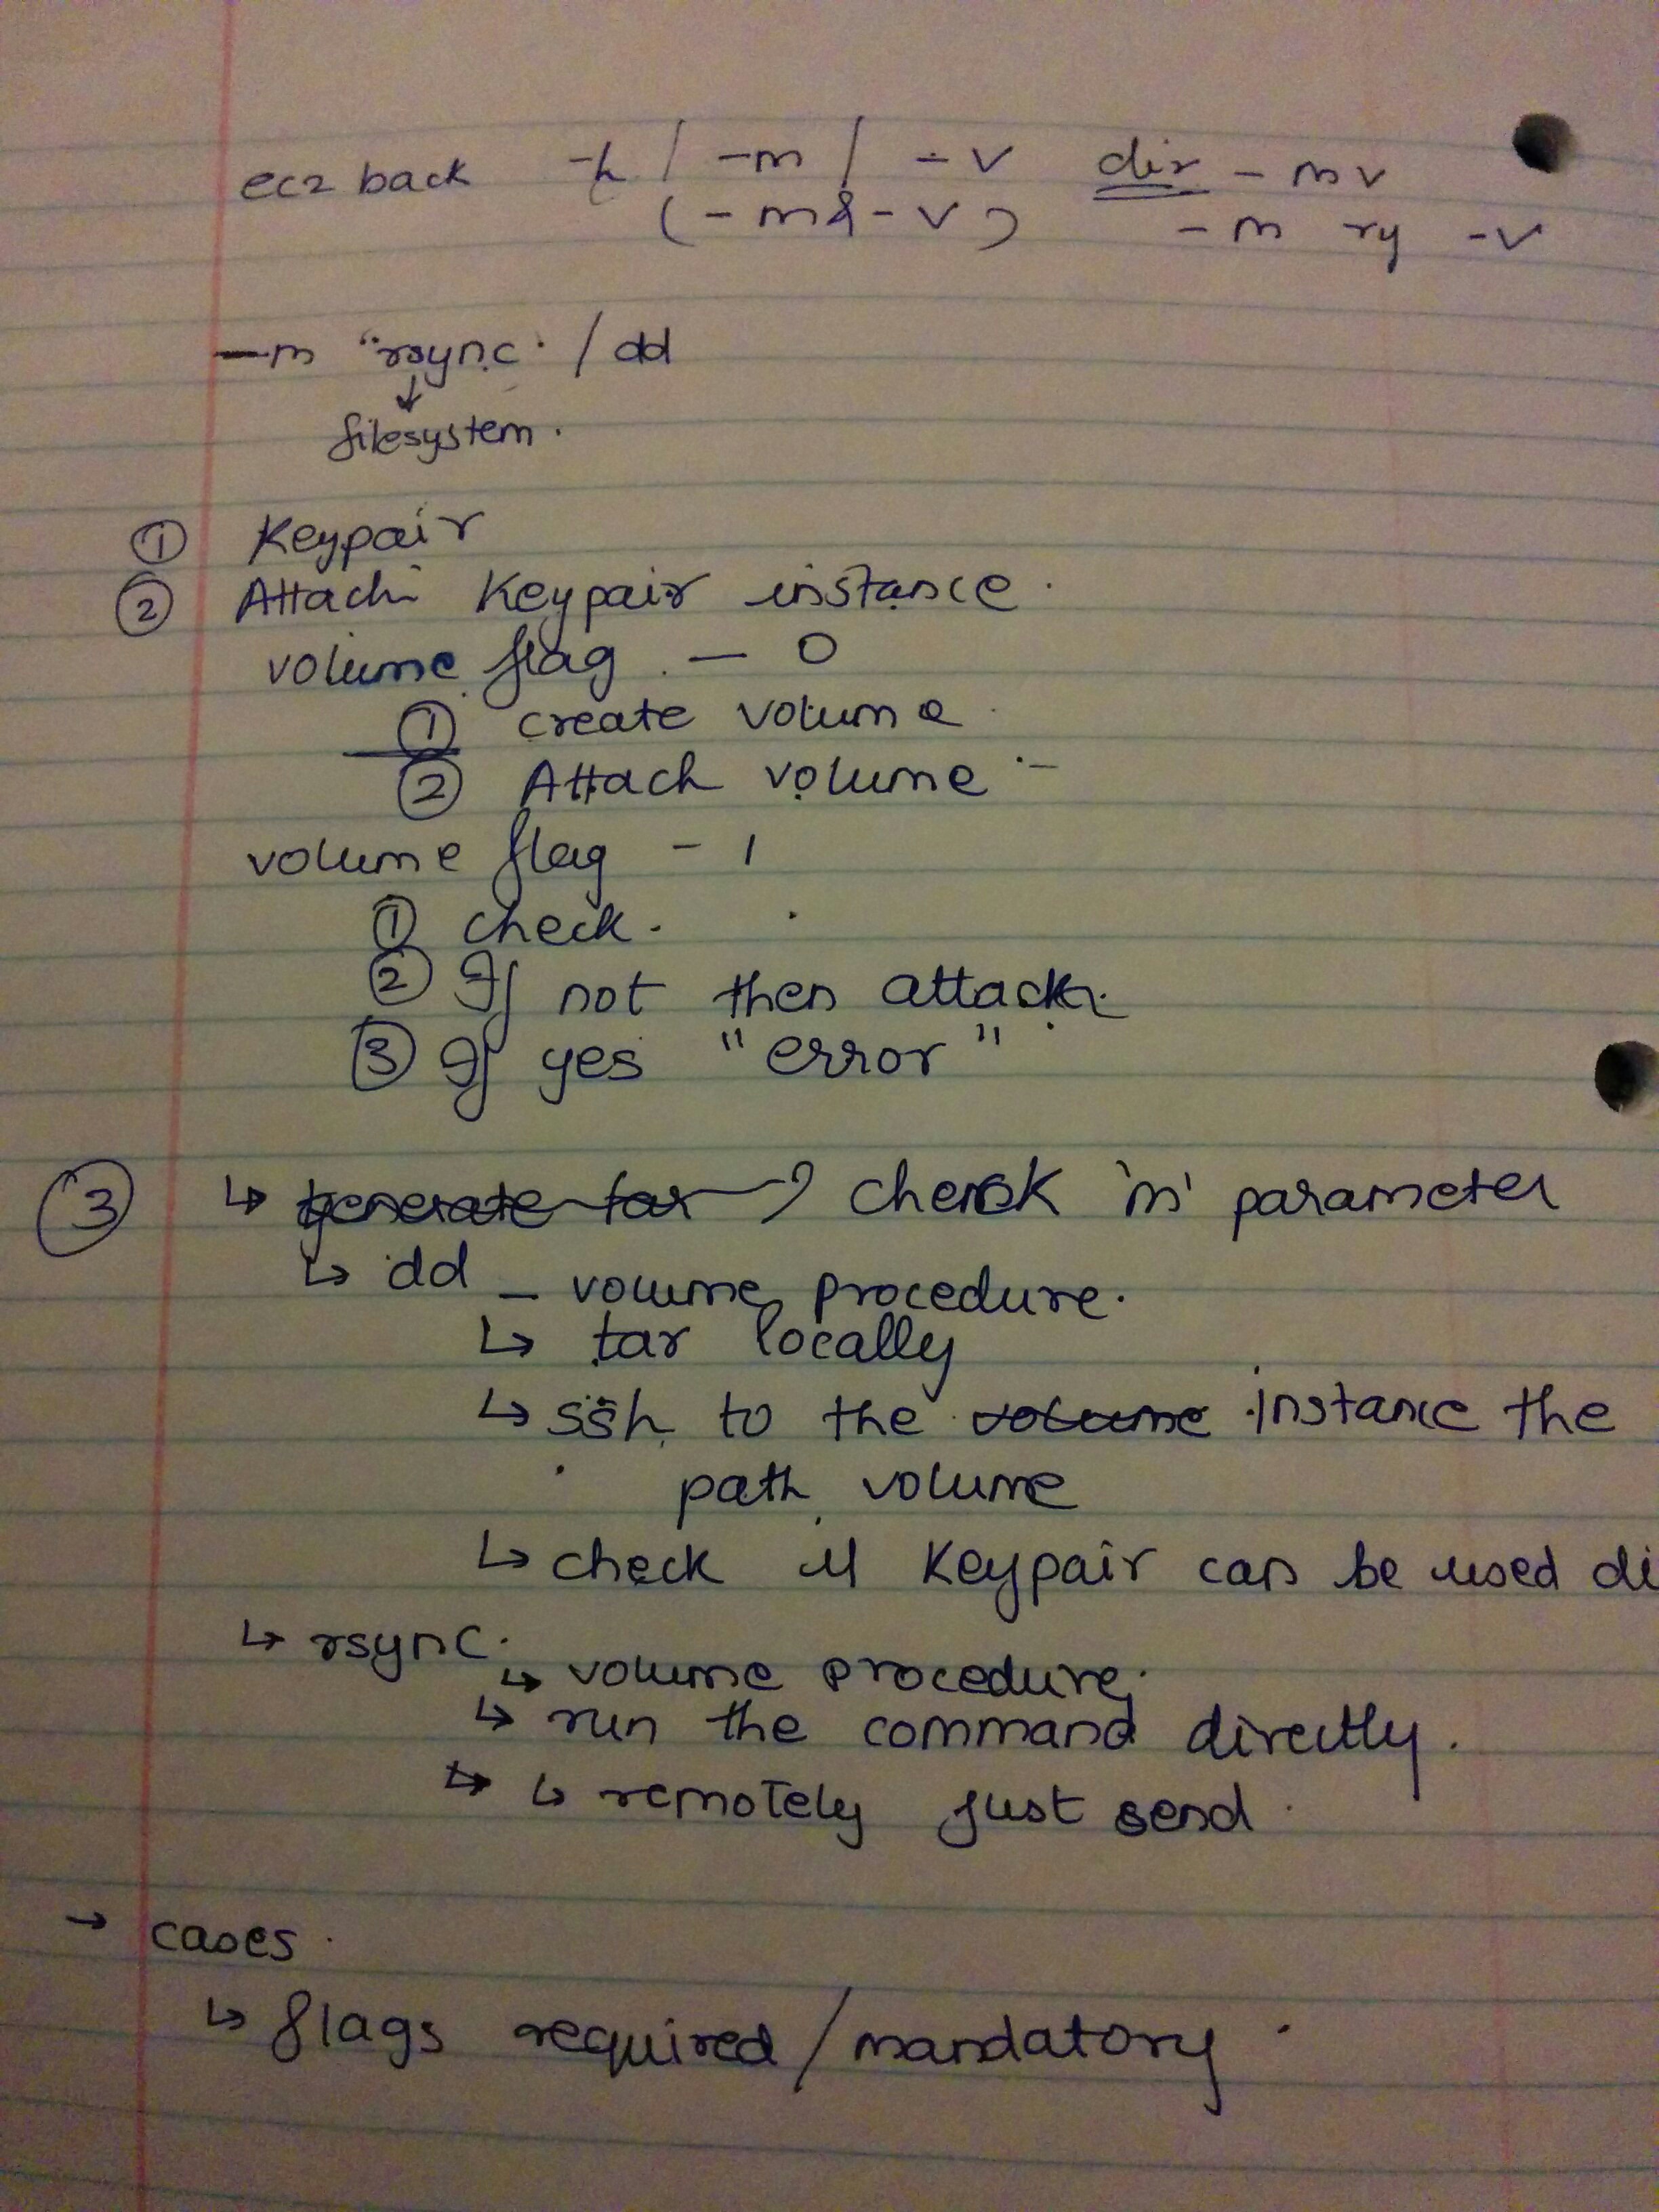 ec2 back -h / -m / -v dir - mv
(-m & -v) - m ry -v
-m "rsync" / dd
↓
filesystem.
① Keypair
② Attach Keypair instance.
volume flag - 0
① create volume
② Attach volume :-
volume flag - 1
① check.
② If not then attach.
③ If yes "error"
③ ↳ generate tar → check 'm' parameter
↳ dd - volume procedure.
↳ tar locally
↳ ssh to the volume instance the
path volume
↳ check if Keypair can be used di
↳ rsync.
↳ volume procedure.
↳ run the command directly.
↳ ↳ remotely just send.
→ cases.
↳ flags required / mandatory.